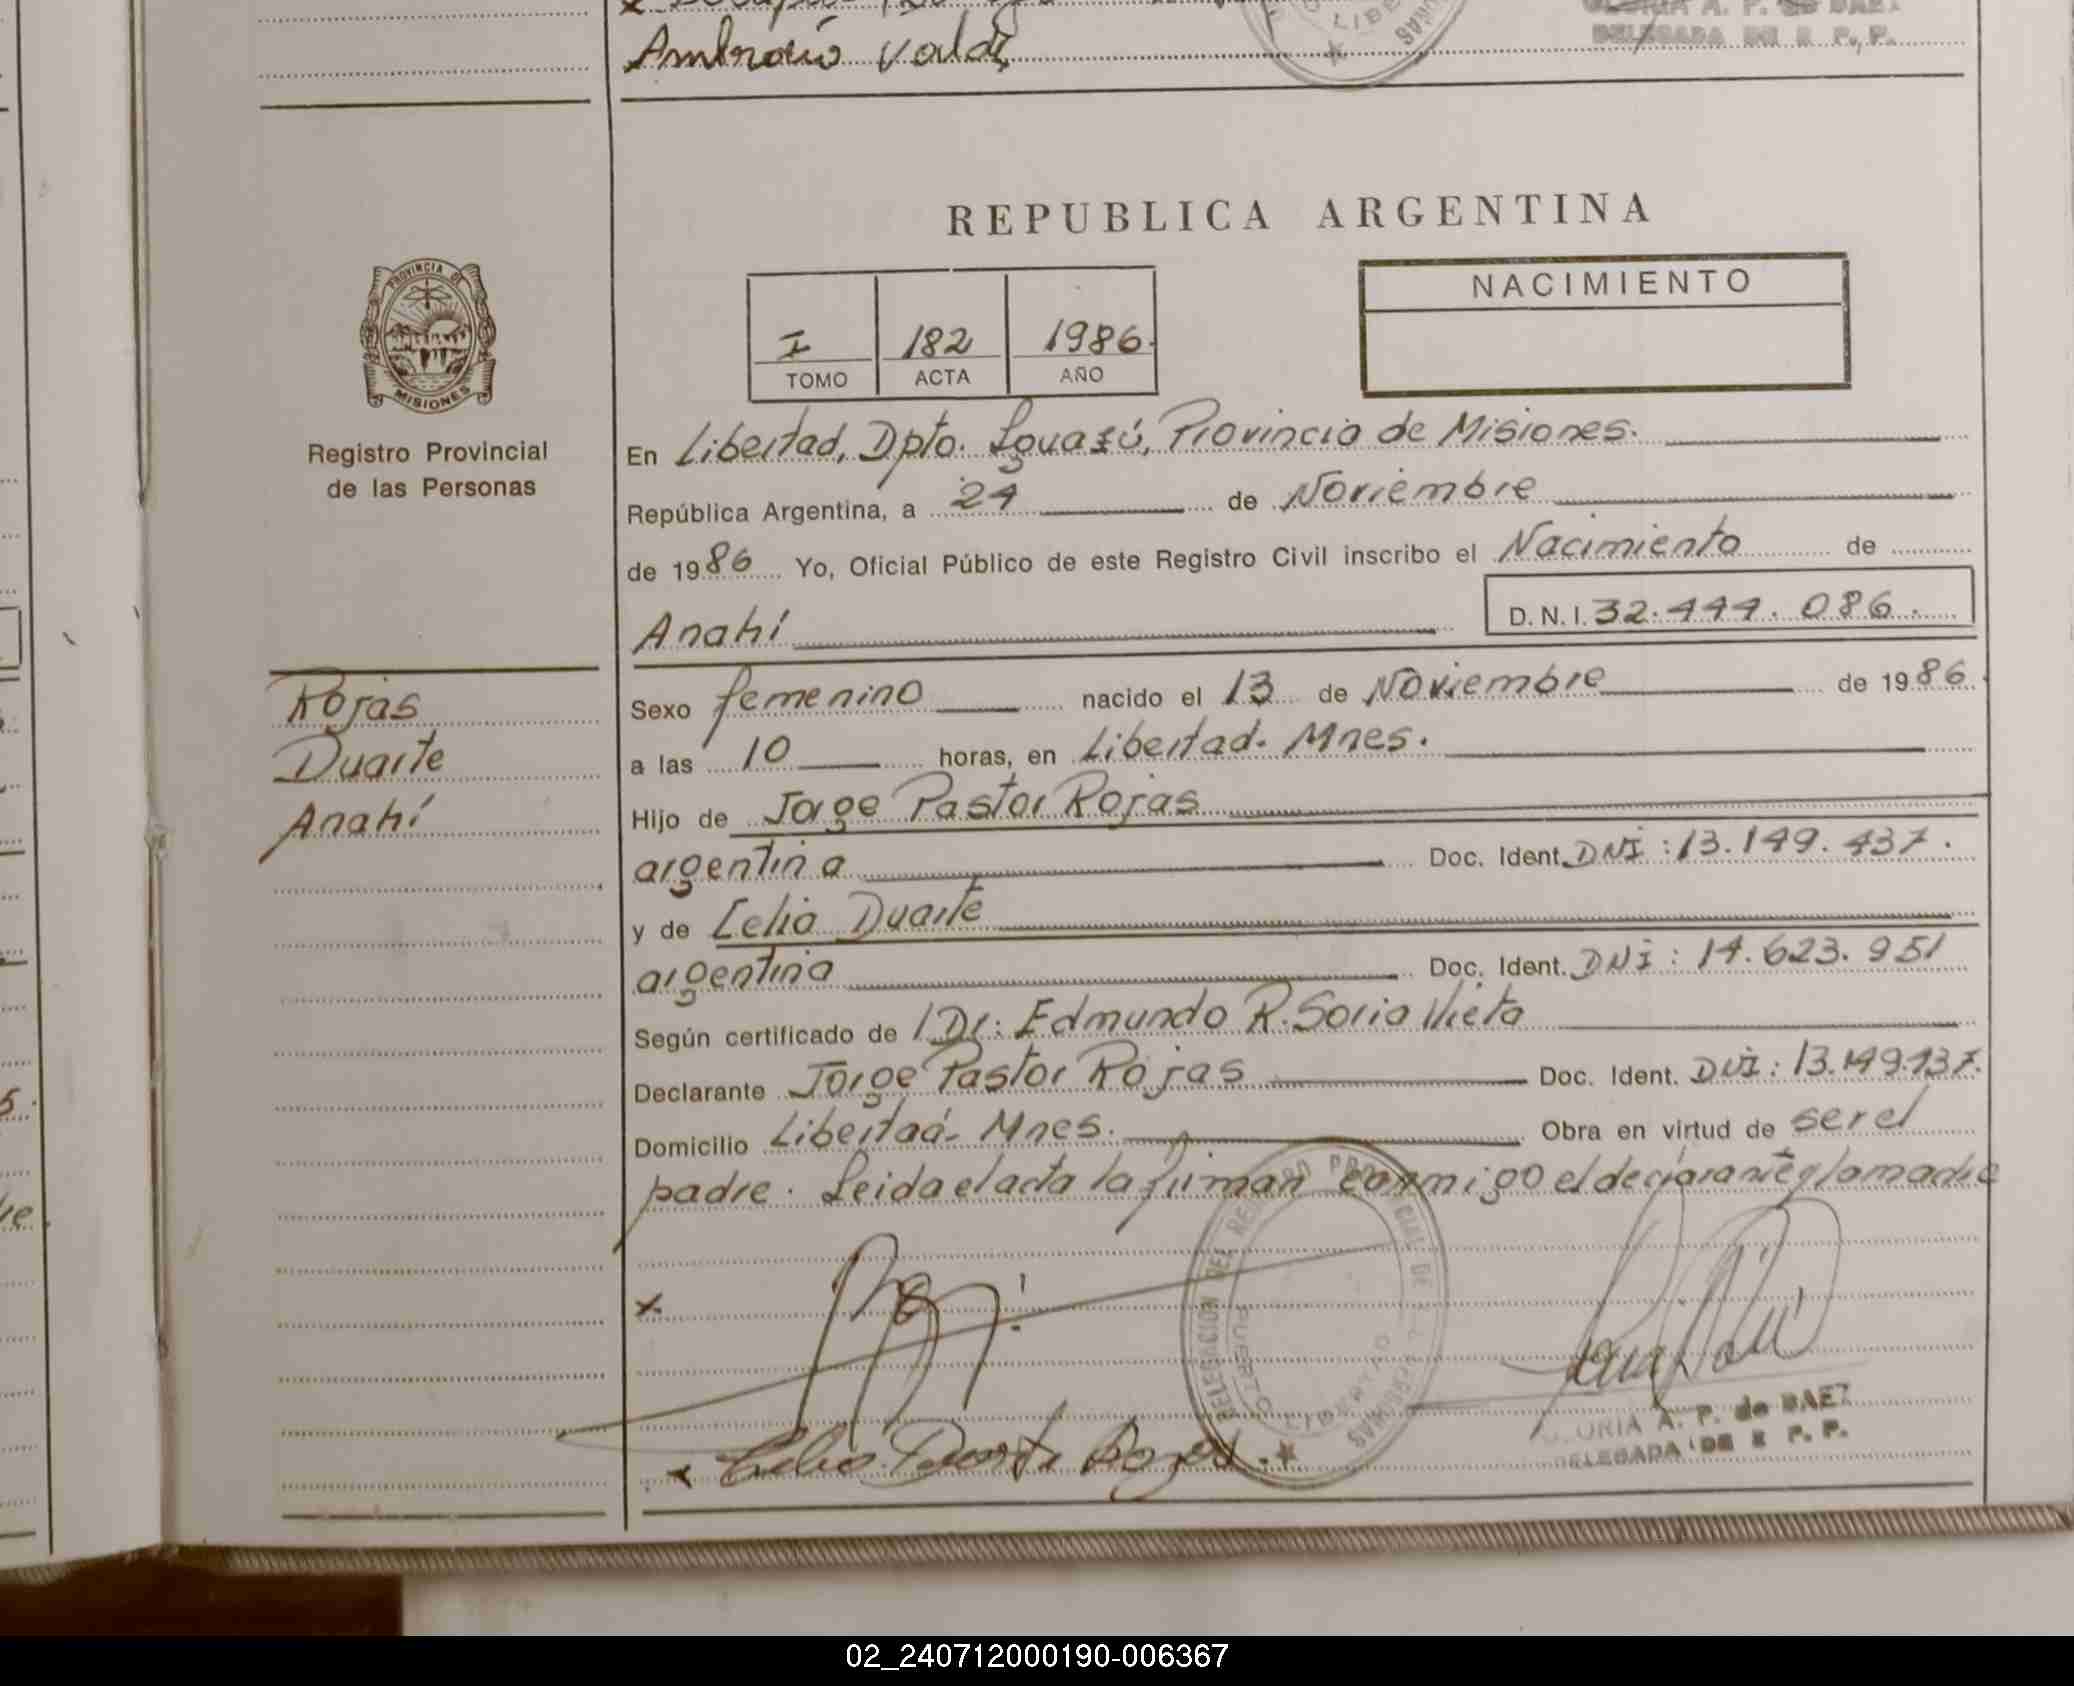 Ambrosio Valdz
REPUBLICA ARGENTINA
PROVINCIA DE
MISIONES
Registro Provincial
de las Personas
I
TOMO
182
ACTA
1986.
AÑO
NACIMIENTO
En Libertad, Dpto. Iguazú, Provincia de Misiones.
República Argentina, a 24 de Noviembre
de 1986 Yo, Oficial Público de este Registro Civil inscribo el Nacimiento de
Anahí D. N. I. 32.444.086.
Rojas
Duarte
Anahí
Sexo femenino nacido el 13 de Noviembre de 1986
a las 10 horas, en Libertad. Mnes.
Hijo de Jorge Pastor Rojas
argentina Doc. Ident. DNI: 13.149.437.
y de Celia Duarte
argentina Doc. Ident. DNI: 14.623.951
Según certificado de Dr: Edmundo R. Soria Vieta
Declarante Jorge Pastor Rojas Doc. Ident. DNI: 13.149.437.
Domicilio Libertad- Mnes. Obra en virtud de ser el
padre. Leida el acta la firman conmigo el declarante y la madre
DELEGACION DEL REGISTRO PROVINCIAL DE
PUERTO LIBERTAD
x
x Celia Duarte Rojas.
A. P. de BAEZ
DELEGADA DE R P. P.
02_240712000190-006367